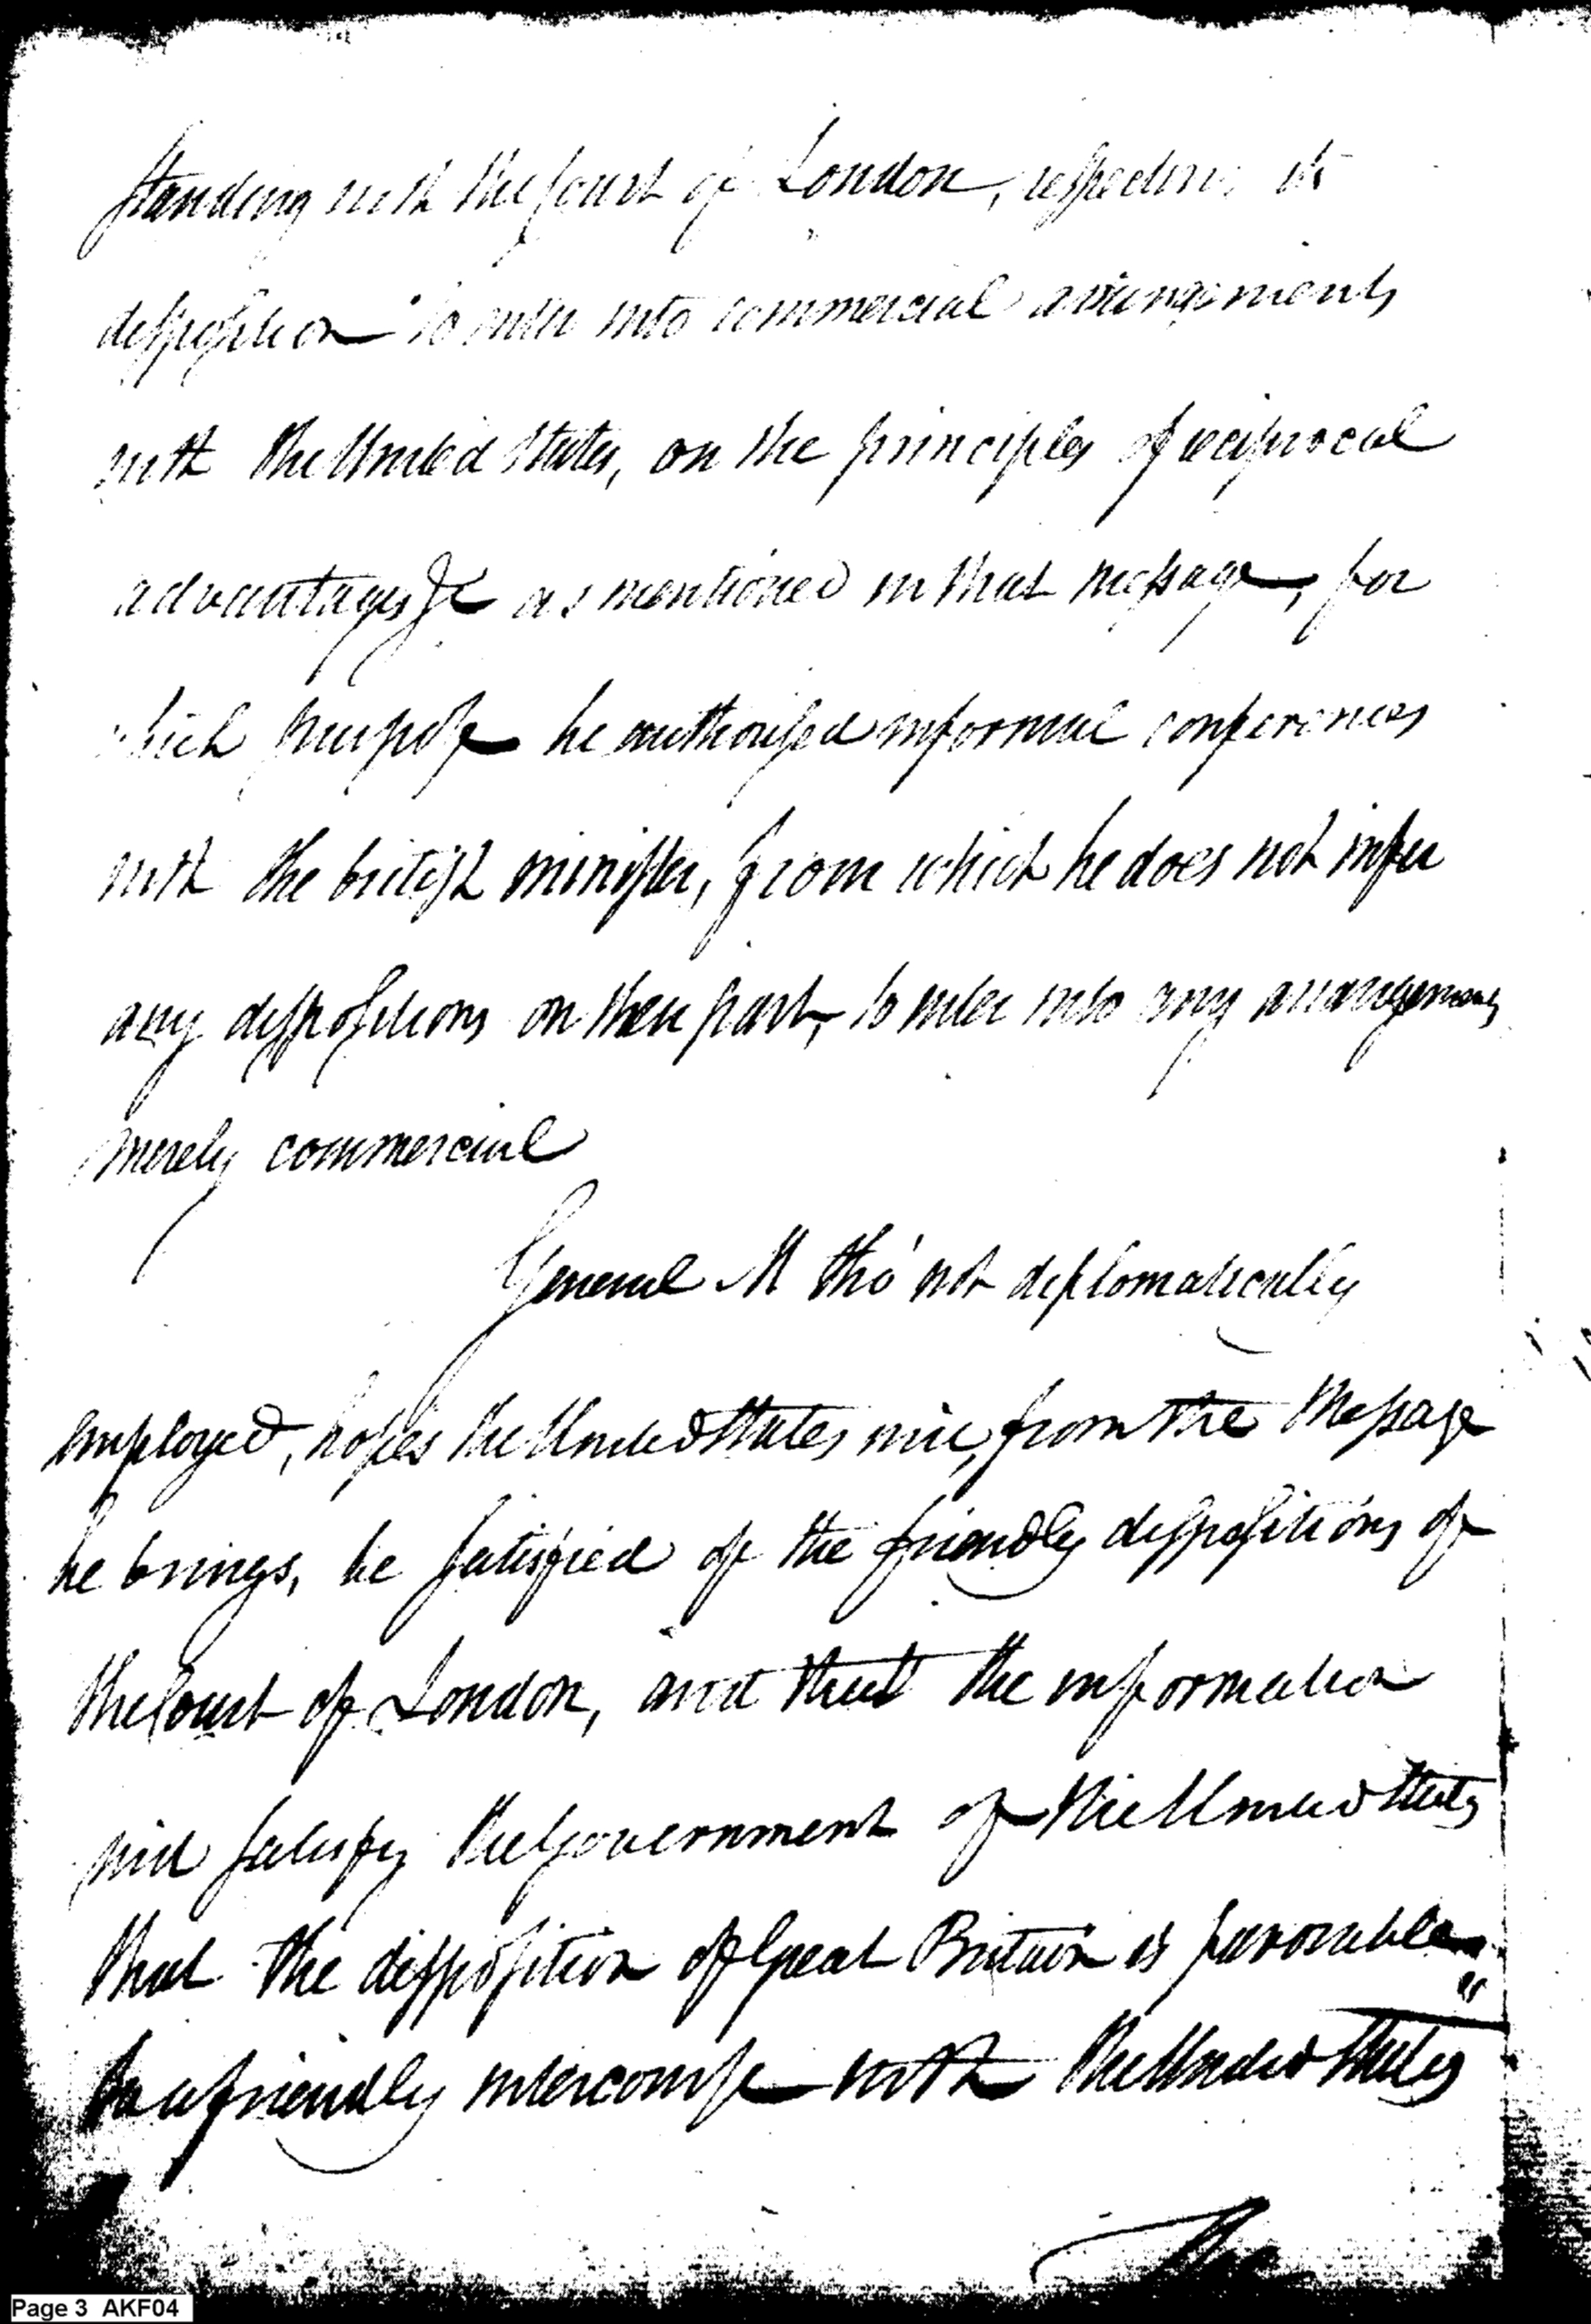 standing with the Court of London, respecting its
disposition to enter into commercial arrangements
with the United States, on the principles of reciprocal
advantages &c as mentioned in that message, for
which purpose he authorised informal conferences
with the british minister, from which he does not infer
any dispositions on their part, to enter into any arrangements
merely commercial
General M tho' not diplomatically
employed, hopes the United States will, from the Message
he brings, be satisfied of the friendly dispositions of
the Court of London, and that the information
will satisfy the Government of the United States
that the disposition of Great Britain is favorable
to a friendly intercourse with the United States
The
Page 3 AKF04